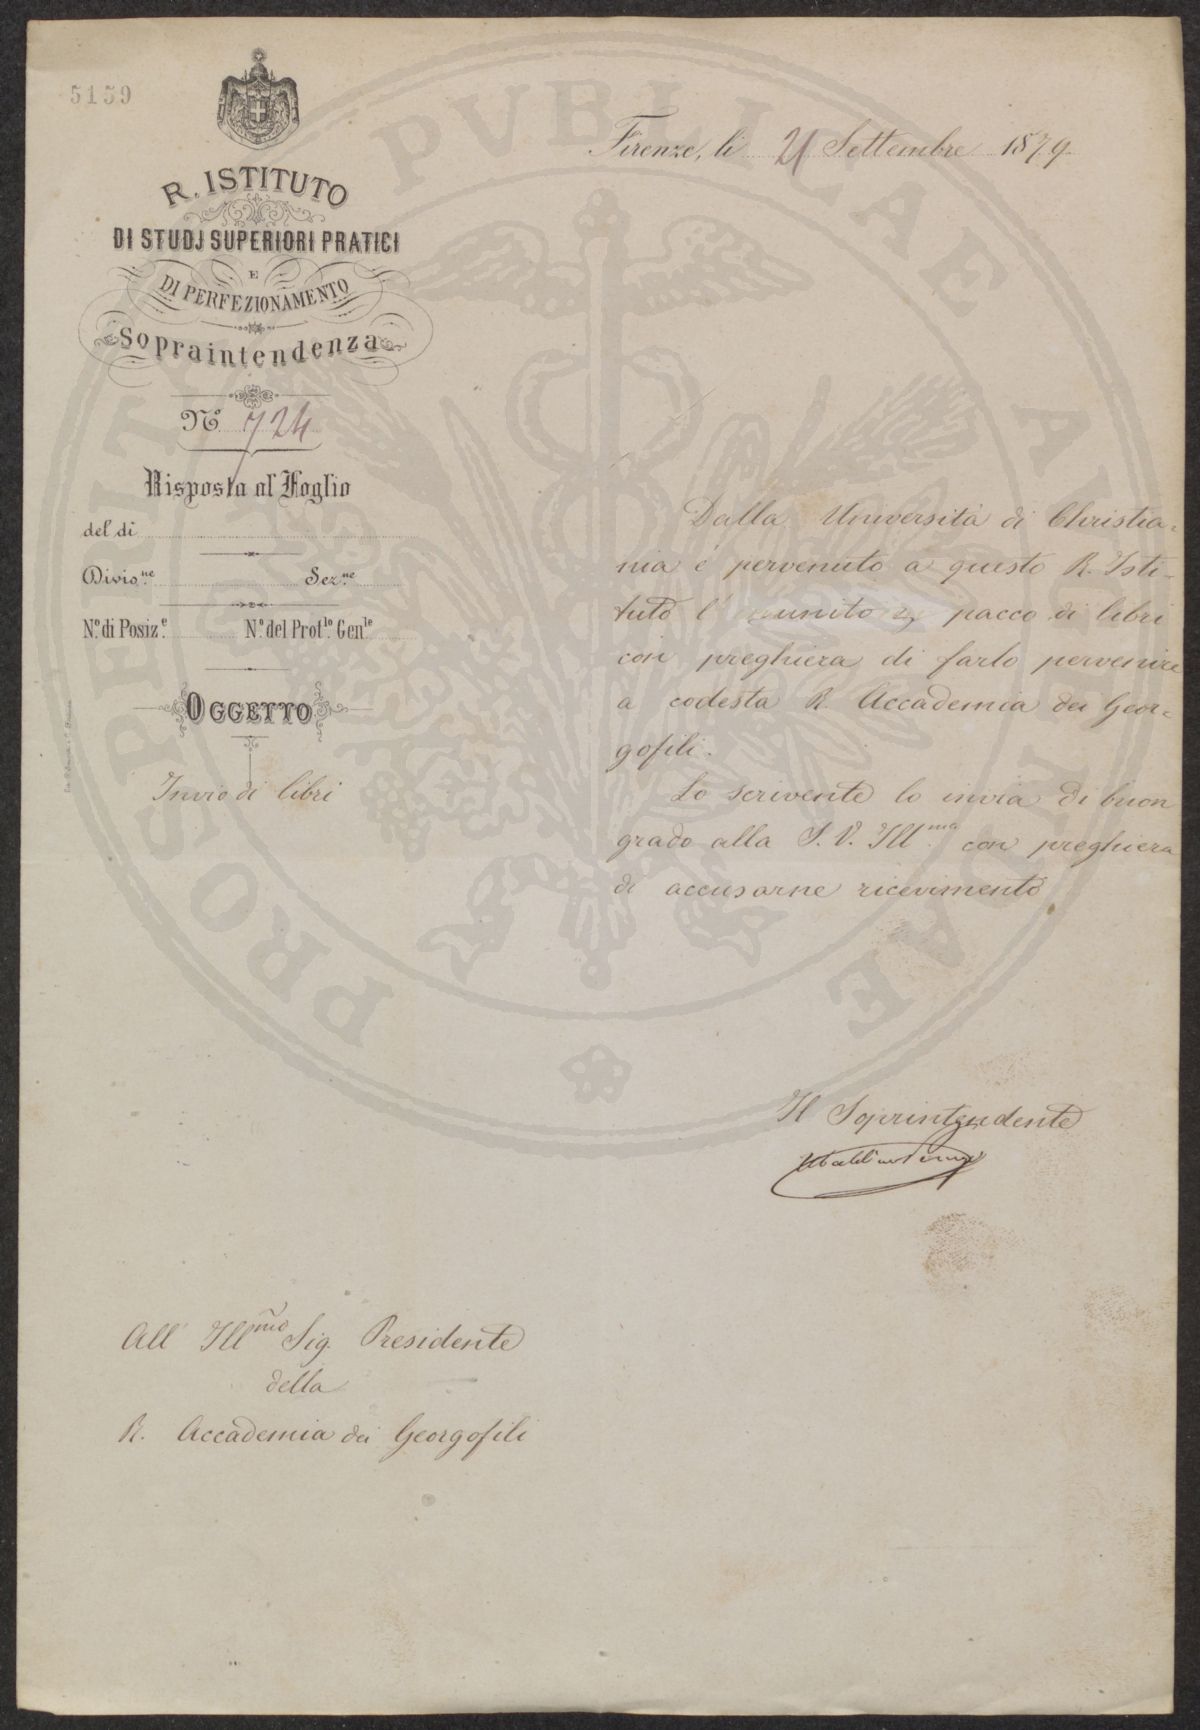 5159
Firenze, li 21 Settembre 1879
R. ISTITUTO
DI STUDJ SUPERIORI PRATICI
E
DI PERFEZIONAMENTO
Sopraintendenza
N.º 724
Risposta al Foglio
del dì
Divis.ne Sez.ne
N.º di Posiz.e N.º del Prot.lo Gen.le
OGGETTO
Invio di libri
Dalla Università di Christia-
nia è pervenuto a questo R. Isti-
tuto l' unito pacco di libri
con preghiera di farlo pervenire
a codesta R. Accademia dei Geor-
gofili.
Lo scrivente lo invia di buon
grado alla S. V. Ill.ma con preghiera
di accusarne ricevimento
Il Soprintendente
All' Ill.mo Sig. Presidente
della
R. Accademia dei Georgofili
PROSPERITATI PVBLICAE AVGENDAE